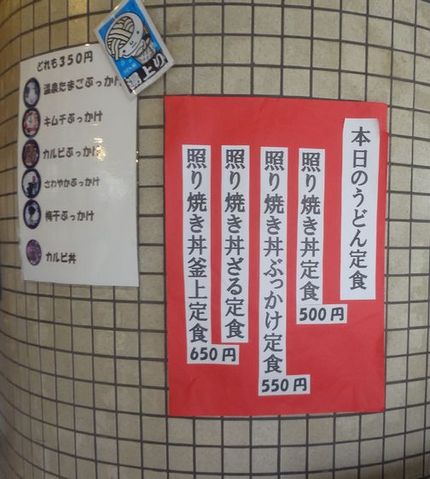 どれも350円
温泉たまごぶっかけ
キムチぶっかけ
カルビぶっかけ
さわやかぶっかけ
梅干ぶっかけ
カルビ丼
本日のうどん定食
照り焼き丼定食
500円
照り焼き丼ぶっかけ定食
550円
照り焼き丼ざる定食
照り焼き丼釜上定食
650円